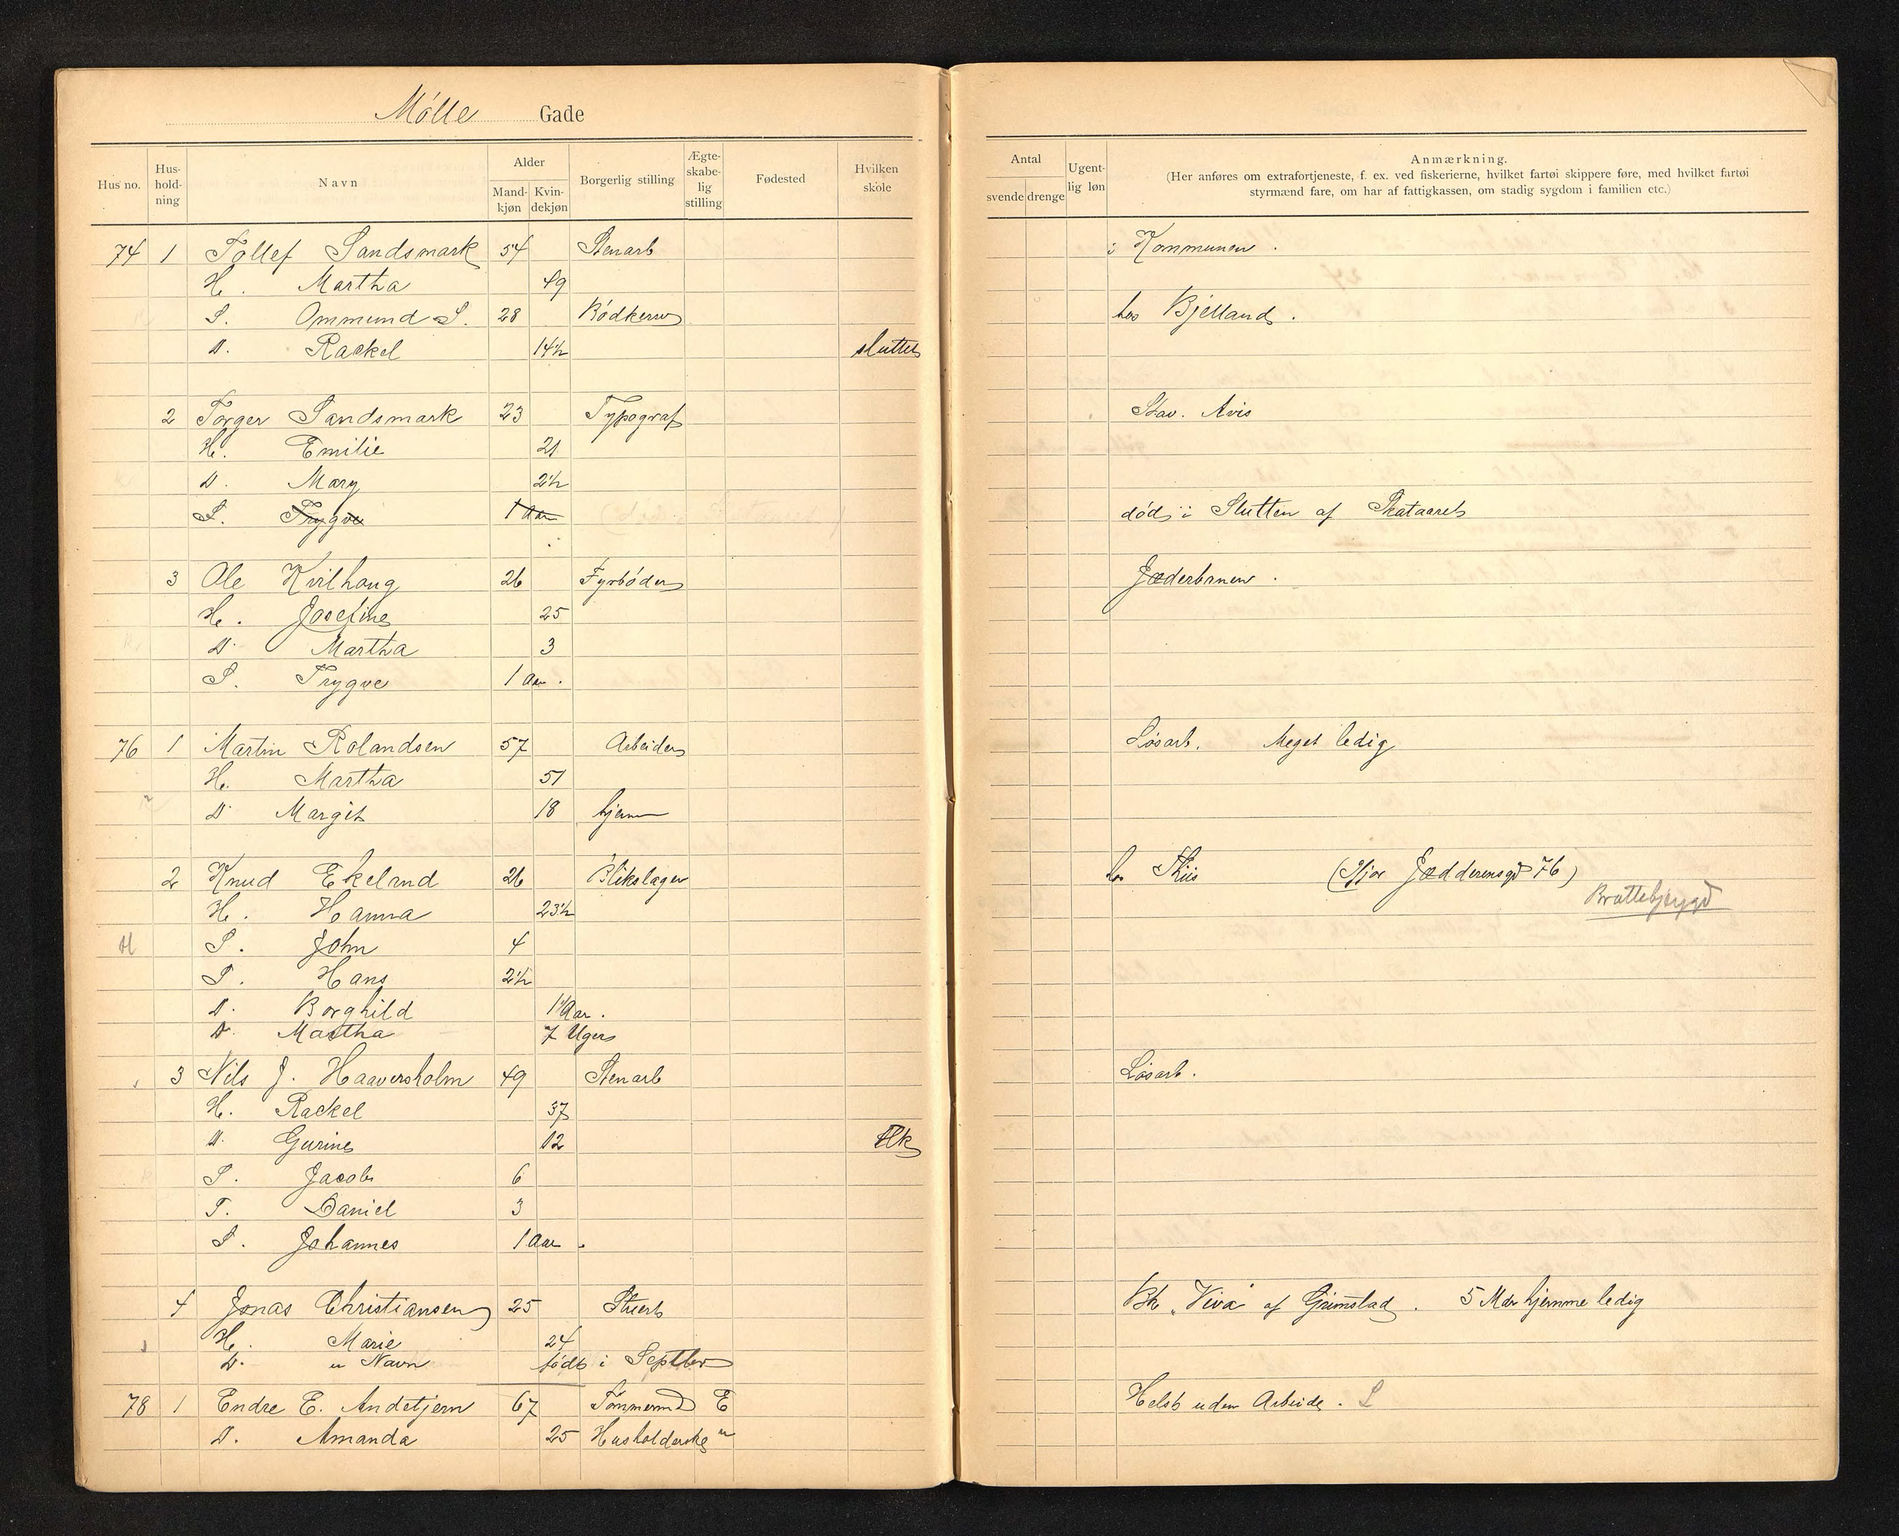 Mólle Gade
Hus no. Hus-hold-ning Navn Alder Mand-kjøn Kvin-dekjøn Borgerlig stilling Ægte-skabe-lig stilling Fødested Hvilken skole
Antal svende drenge Ugent-lig løn Anmærkning.
(Her anføres om extrafortjeneste, f. ex. ved fiskerierne, hvilket fartøi skippere føre, med hvilket fartøi
styrmænd fare, om har af fattigkassen, om stadig sygdom i familien etc.)
74 1 Tollef Sandsmark 54 Stenarb i Kommunen .
H. Martha 49
S. Ommund S. 28 Bødkersv hos Bjelland .
D. Rackel 14½ sluttet
2 Torger Sandsmark 23 Typograf Stav. Avis
H. Emilie 21
D. Mary 2½
S. Trygve 1 Aar død i Slutten af Skataaret
3 Ole Kvilhaug 26 Fyrbøder Jæderbanen .
H. Josefine 25
D. Martha 3
S. Trygve 1 Aar .
76 1 Martin Rolandsen 57 Arbeider Løsarb. Meget ledig
H. Martha 51
D. Margit 18 hjemme
2 Knud Ekeland 26 Blikslager hos Thiis (Hjør Jædderensgd 76)
H. Hanna 23½ Brattebjergd
S. John 4
S. Hans 2½
D. Borghild 1 Aar .
D. Martha 7 Uger
3 Nils J. Haaversholm 49 Stenarb Løsarb.
H. Rackel 37
D. Gurine 12 flk
S. Jacob 6
S. Daniel 3
S. Johannes 1 Aar .
4 Jonas Christiansen 25 Stuert Bk „Viva" af Grimstad . 5 Mdr hjemme ledig
H. Marie 24
D. u Navn født i Septber
78 1 Endre E. Andetjern 67 Tømmermd E Helst uden Arbeide . S
D. Amanda 25 Husholderske "